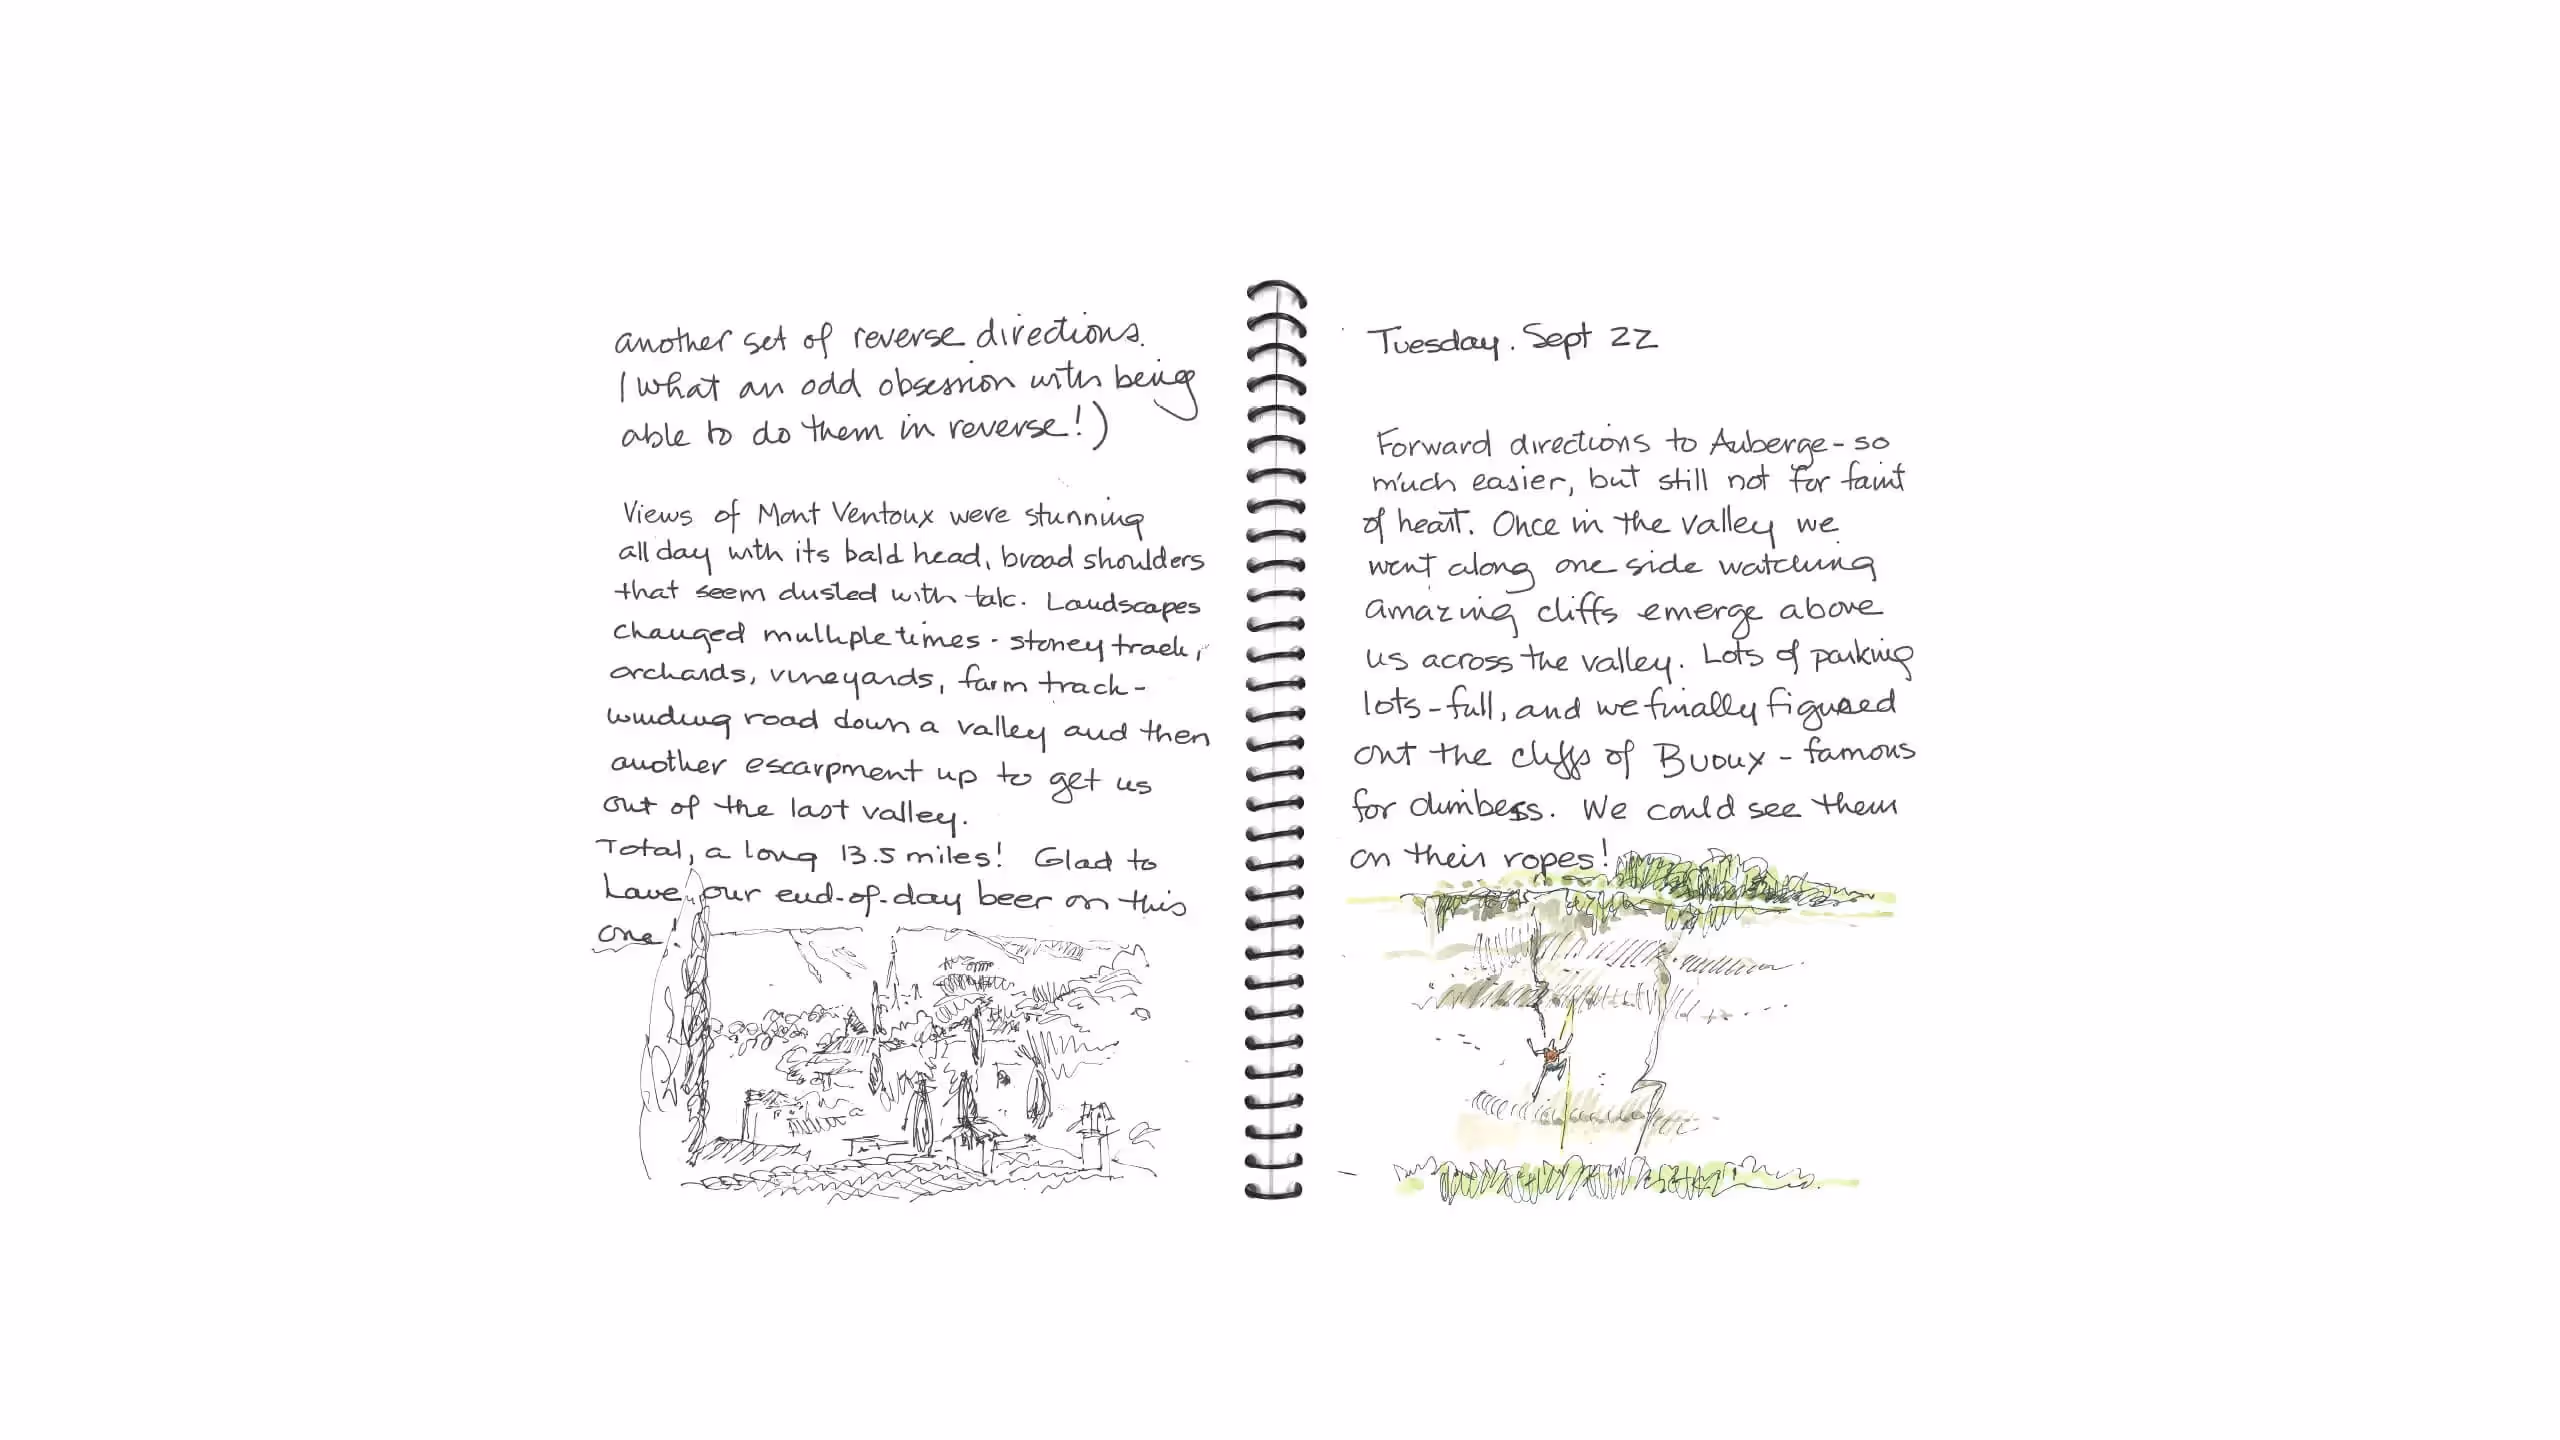 another set of reverse directions.
(what an odd obsession with being
able to do them in reverse!)
Views of Mont Ventoux were stunning
all day with its bald head, broad shoulders
that seem dusted with talc. Landscapes
changed multiple times - stoney track,
orchards, vineyards, farm track -
winding road down a valley and then
another escarpment up to get us
out of the last valley.
Total, a long 13.5 miles! Glad to
have our end-of-day beer on this
one!
Tuesday. Sept 22
Forward directions to Auberge - so
much easier, but still not for faint
of heart. Once in the valley we
went along one side watching
amazing cliffs emerge above
us across the valley. Lots of parking
lots - full, and we finally figured
out the cliffs of Buoux - famous
for climbers. We could see them
on their ropes!